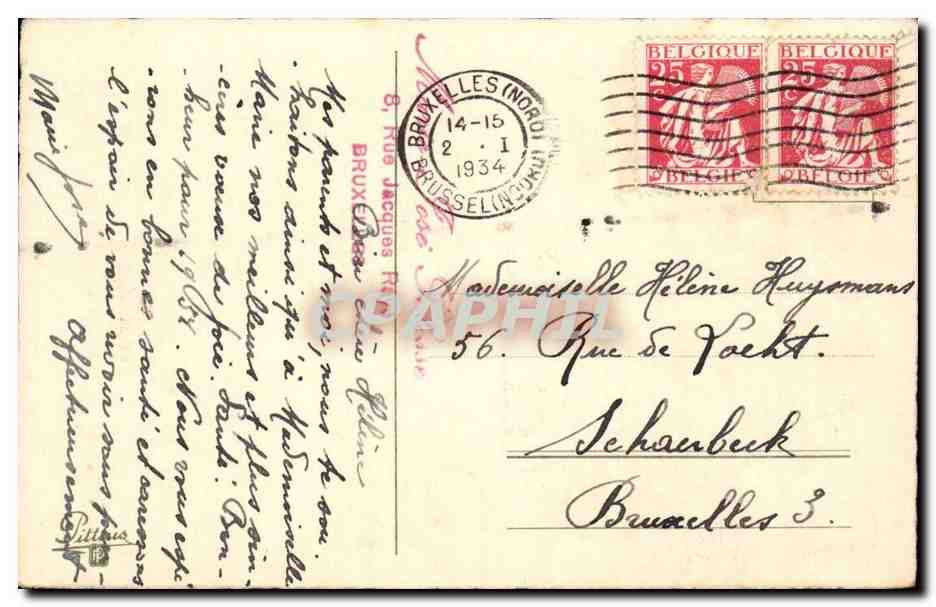 Bien chère Hélène
Mes parents et moi, nous te sou-
haitons ainsi qu'à Mademoiselle
Marie nos meilleurs et plus sin-
cères voeux de joie. Santé! Bon-
heur pour 1934. Nous vous espé-
rons en bonne santé et
l'espoir de vous revoir sous peu
affectueusement
Marie José
Pittius
8, Rue Jacques
BRUXELLES
BRUXELLES (NORD)
14-15
2 · I
1934
BRUSSEL (NOORD)
BELGIQUE
25 c
BELGIË
BELGIQUE
25 c
BELGIË
Mademoiselle Hélène Huysmans
56. Rue de Locht.
Schaerbeek
Bruxelles 3.
CPAPHIL